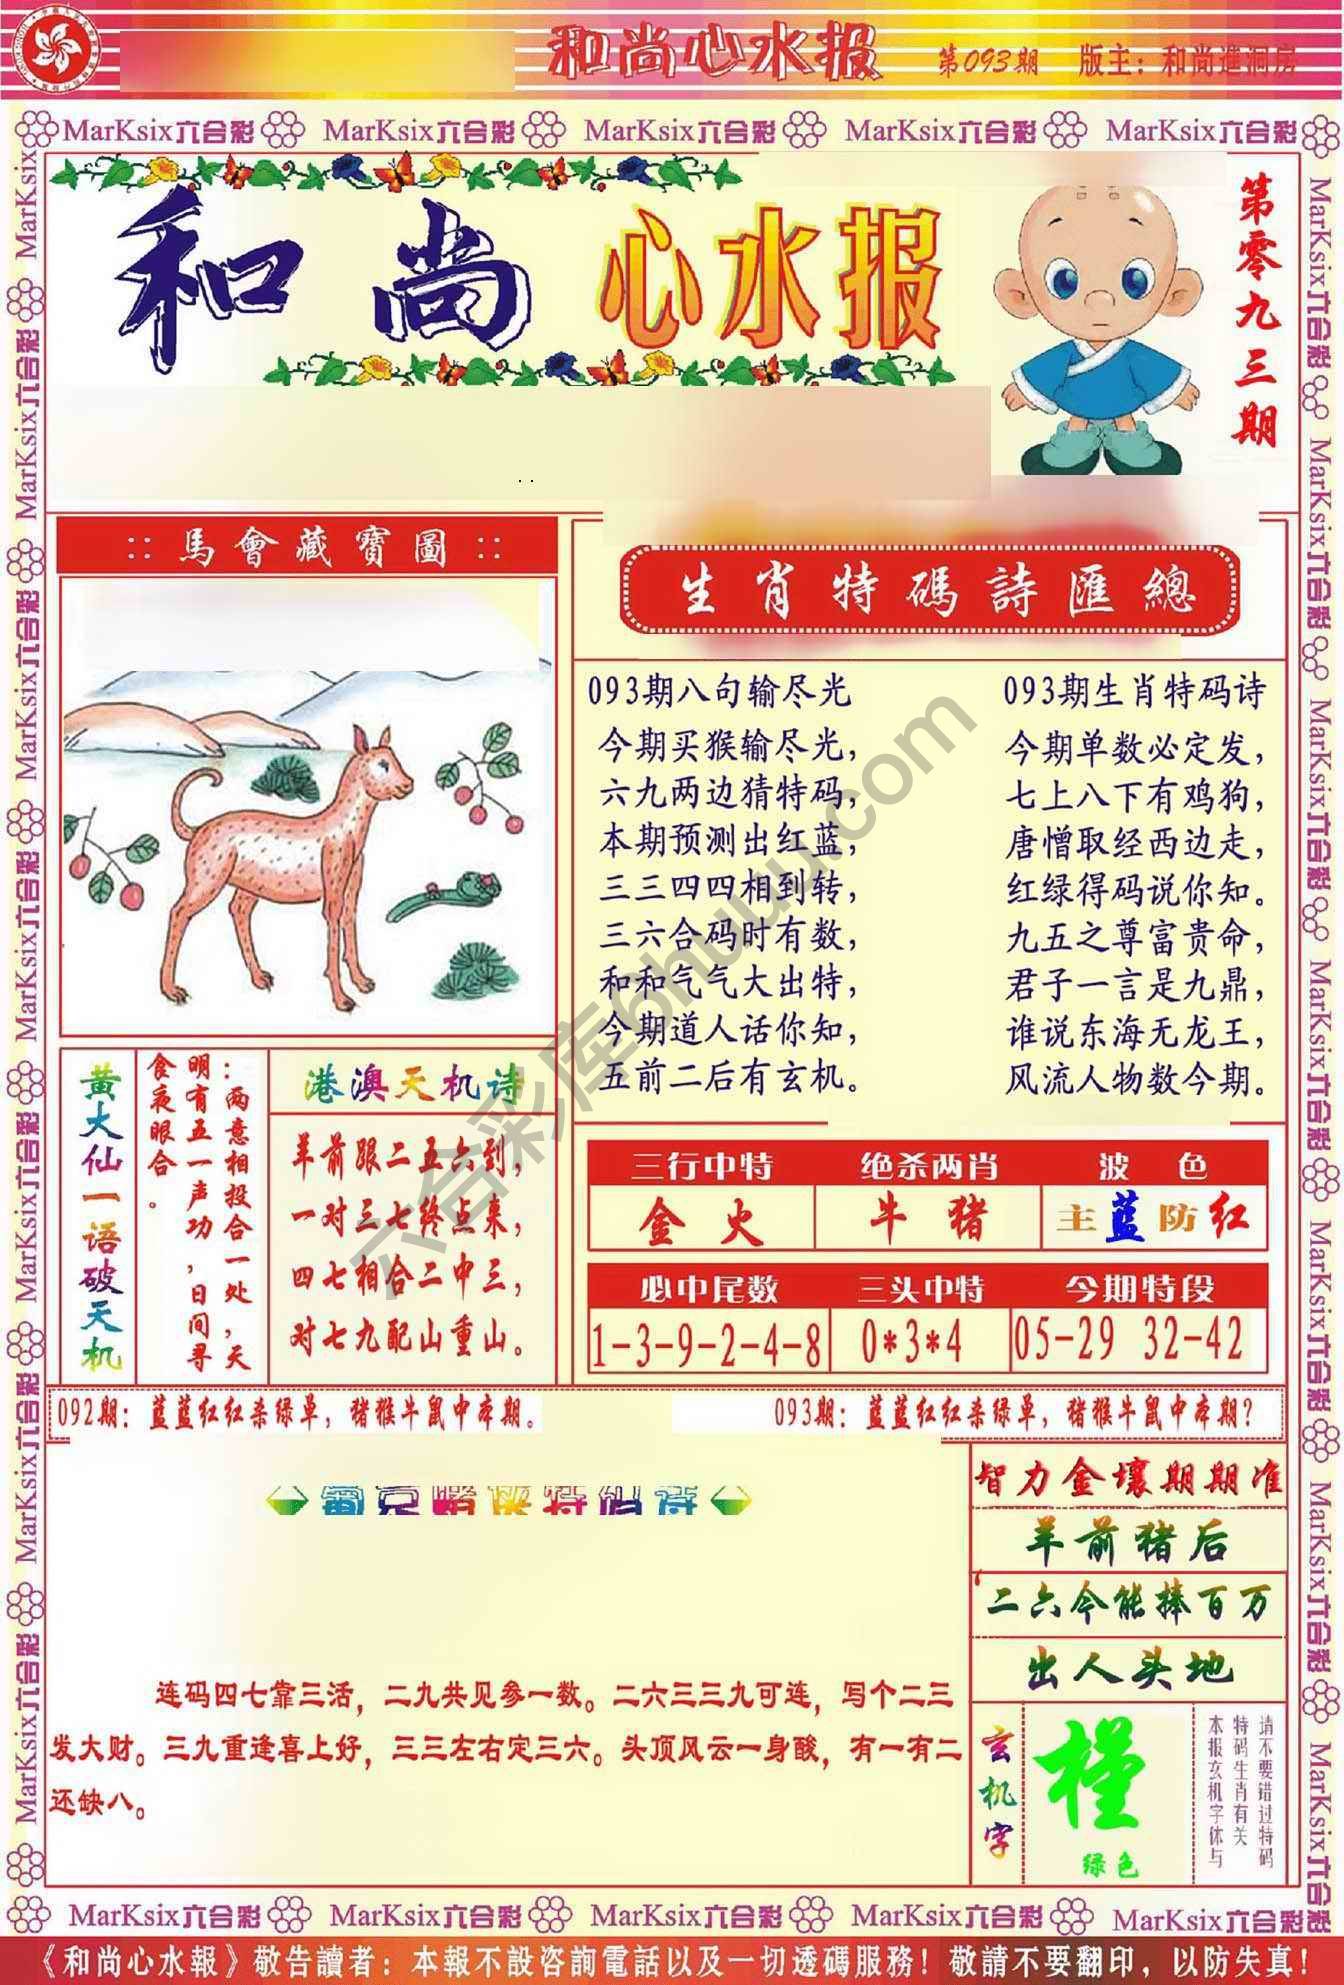 和尚心水报 第093期 版主：和尚進洞房
MarKsix六合彩 MarKsix六合彩 MarKsix六合彩 MarKsix六合彩 MarKsix六合彩
和尚心水报
第零九三期
::馬會藏寶圖::
生肖特碼詩匯總
093期八句输尽光
今期买猴输尽光，
六九两边猜特码，
本期预测出红蓝，
三三四四相到转，
三六合码时有数，
和和气气大出特，
今期道人话你知，
五前二后有玄机。
093期生肖特码诗
今期单数必定发，
七上八下有鸡狗，
唐憎取经西边走，
红绿得码说你知。
九五之尊富贵命，
君子一言是九鼎，
谁说东海无龙王，
风流人物数今期。
黄大仙一语破天机
：两意相投合一处，天
明有五一声功，日间寻
食夜眼合。
港澳天机诗
羊前跟二五六到，
一对三七终点来，
四七相合二中三，
对七九配山重山。
三行中特 绝杀两肖 波色
金火 牛猪 主蓝防红
必中尾数 三头中特 今期特段
1-3-9-2-4-8 0*3*4 05-29 32-42
092期：蓝蓝红红杀绿单，猪猴牛鼠中本期。 093期：蓝蓝红红杀绿单，猪猴牛鼠中本期？
连码四七靠三活，二九共见参一数。二六三三九可连，写个二三
发大财。三九重逢喜上好，三三左右定三六。头顶风云一身酸，有一有二
还缺八。
智力金壤期期准
羊前猪后
二六今能捧百万
出人头地
玄机字
槿
绿色
请不要错过特码
特码生肖有关
本报玄机字体与
MarKsix六合彩 MarKsix六合彩 MarKsix六合彩 MarKsix六合彩 MarKsix六合彩
《和尚心水報》敬告讀者：本報不設咨詢電話以及一切透碼服務！敬請不要翻印，以防失真！
六合彩库6huuu.com